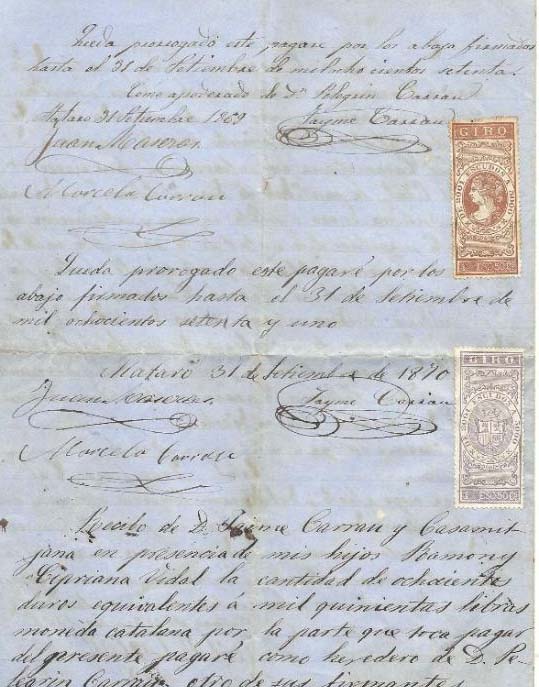 Queda prorogado este pagare por los abajo firmados
hasta el 31 de Setiembre de mil ocho cientos setenta.
Como apoderado de Dn Pelegrin Carrau
Mataro 31 Setiembre 1869
Jayme Carrau
Juan Maseras
Marcela Carrau
GIRO
Queda prorogado este pagaré por los
abajo firmados hasta el 31 de Setiembre de
mil ochocientos setenta y uno
Mataró 31 de Setiembre de 1870
Juan Maseras
Jayme Carrau
Marcela Carrau
GIRO
Recibo de D. Jaime Carrau y Casamit
jana en presencia de mis hijos Ramon y
Cipriana Vidal la cantidad de ochocientos
duros equivalentes á mil quinientas libras
moneda catalana por la parte que toca pagar
del presente pagaré como heredero de D. Pe-
legrin Carrau otro de sus firmantes